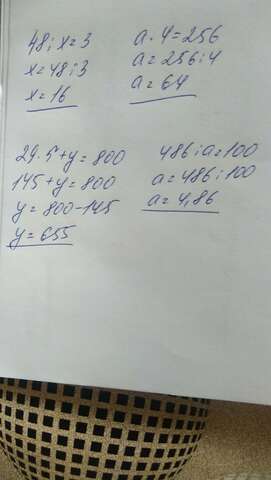 48:x=3
x=48:3
x=16
a·4=256
a=256:4
a=64
29·5+y=800
145+y=800
y=800-145
y=655
486:a=100
a=486:100
a=4,86